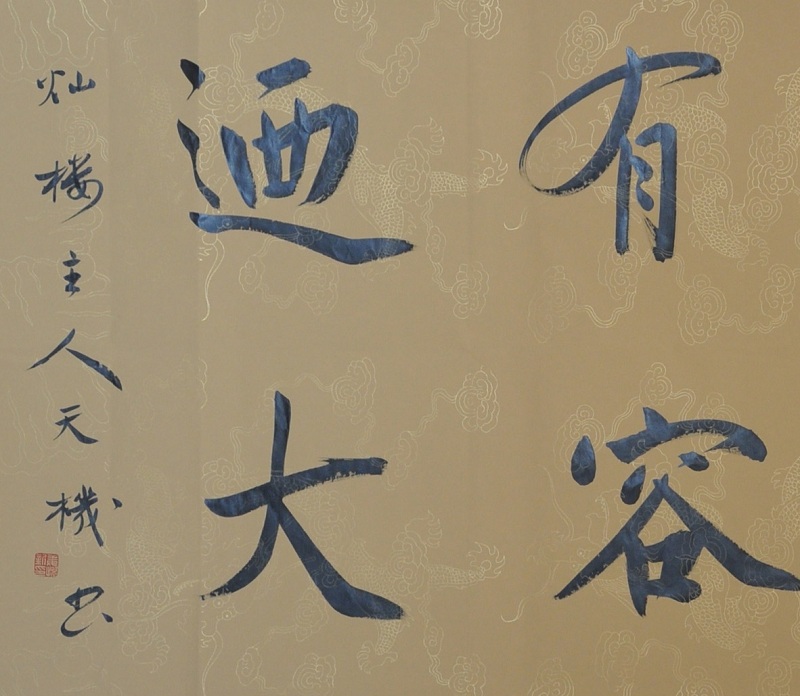 有容
廼大
灿楼主人天機书